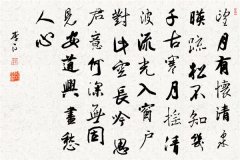 望月有懷清泉
映疏松不知幾
千古寒月搖清
波流光入窗戶
對此空長吟思
君意何深無因
見安道興盡愁
人心